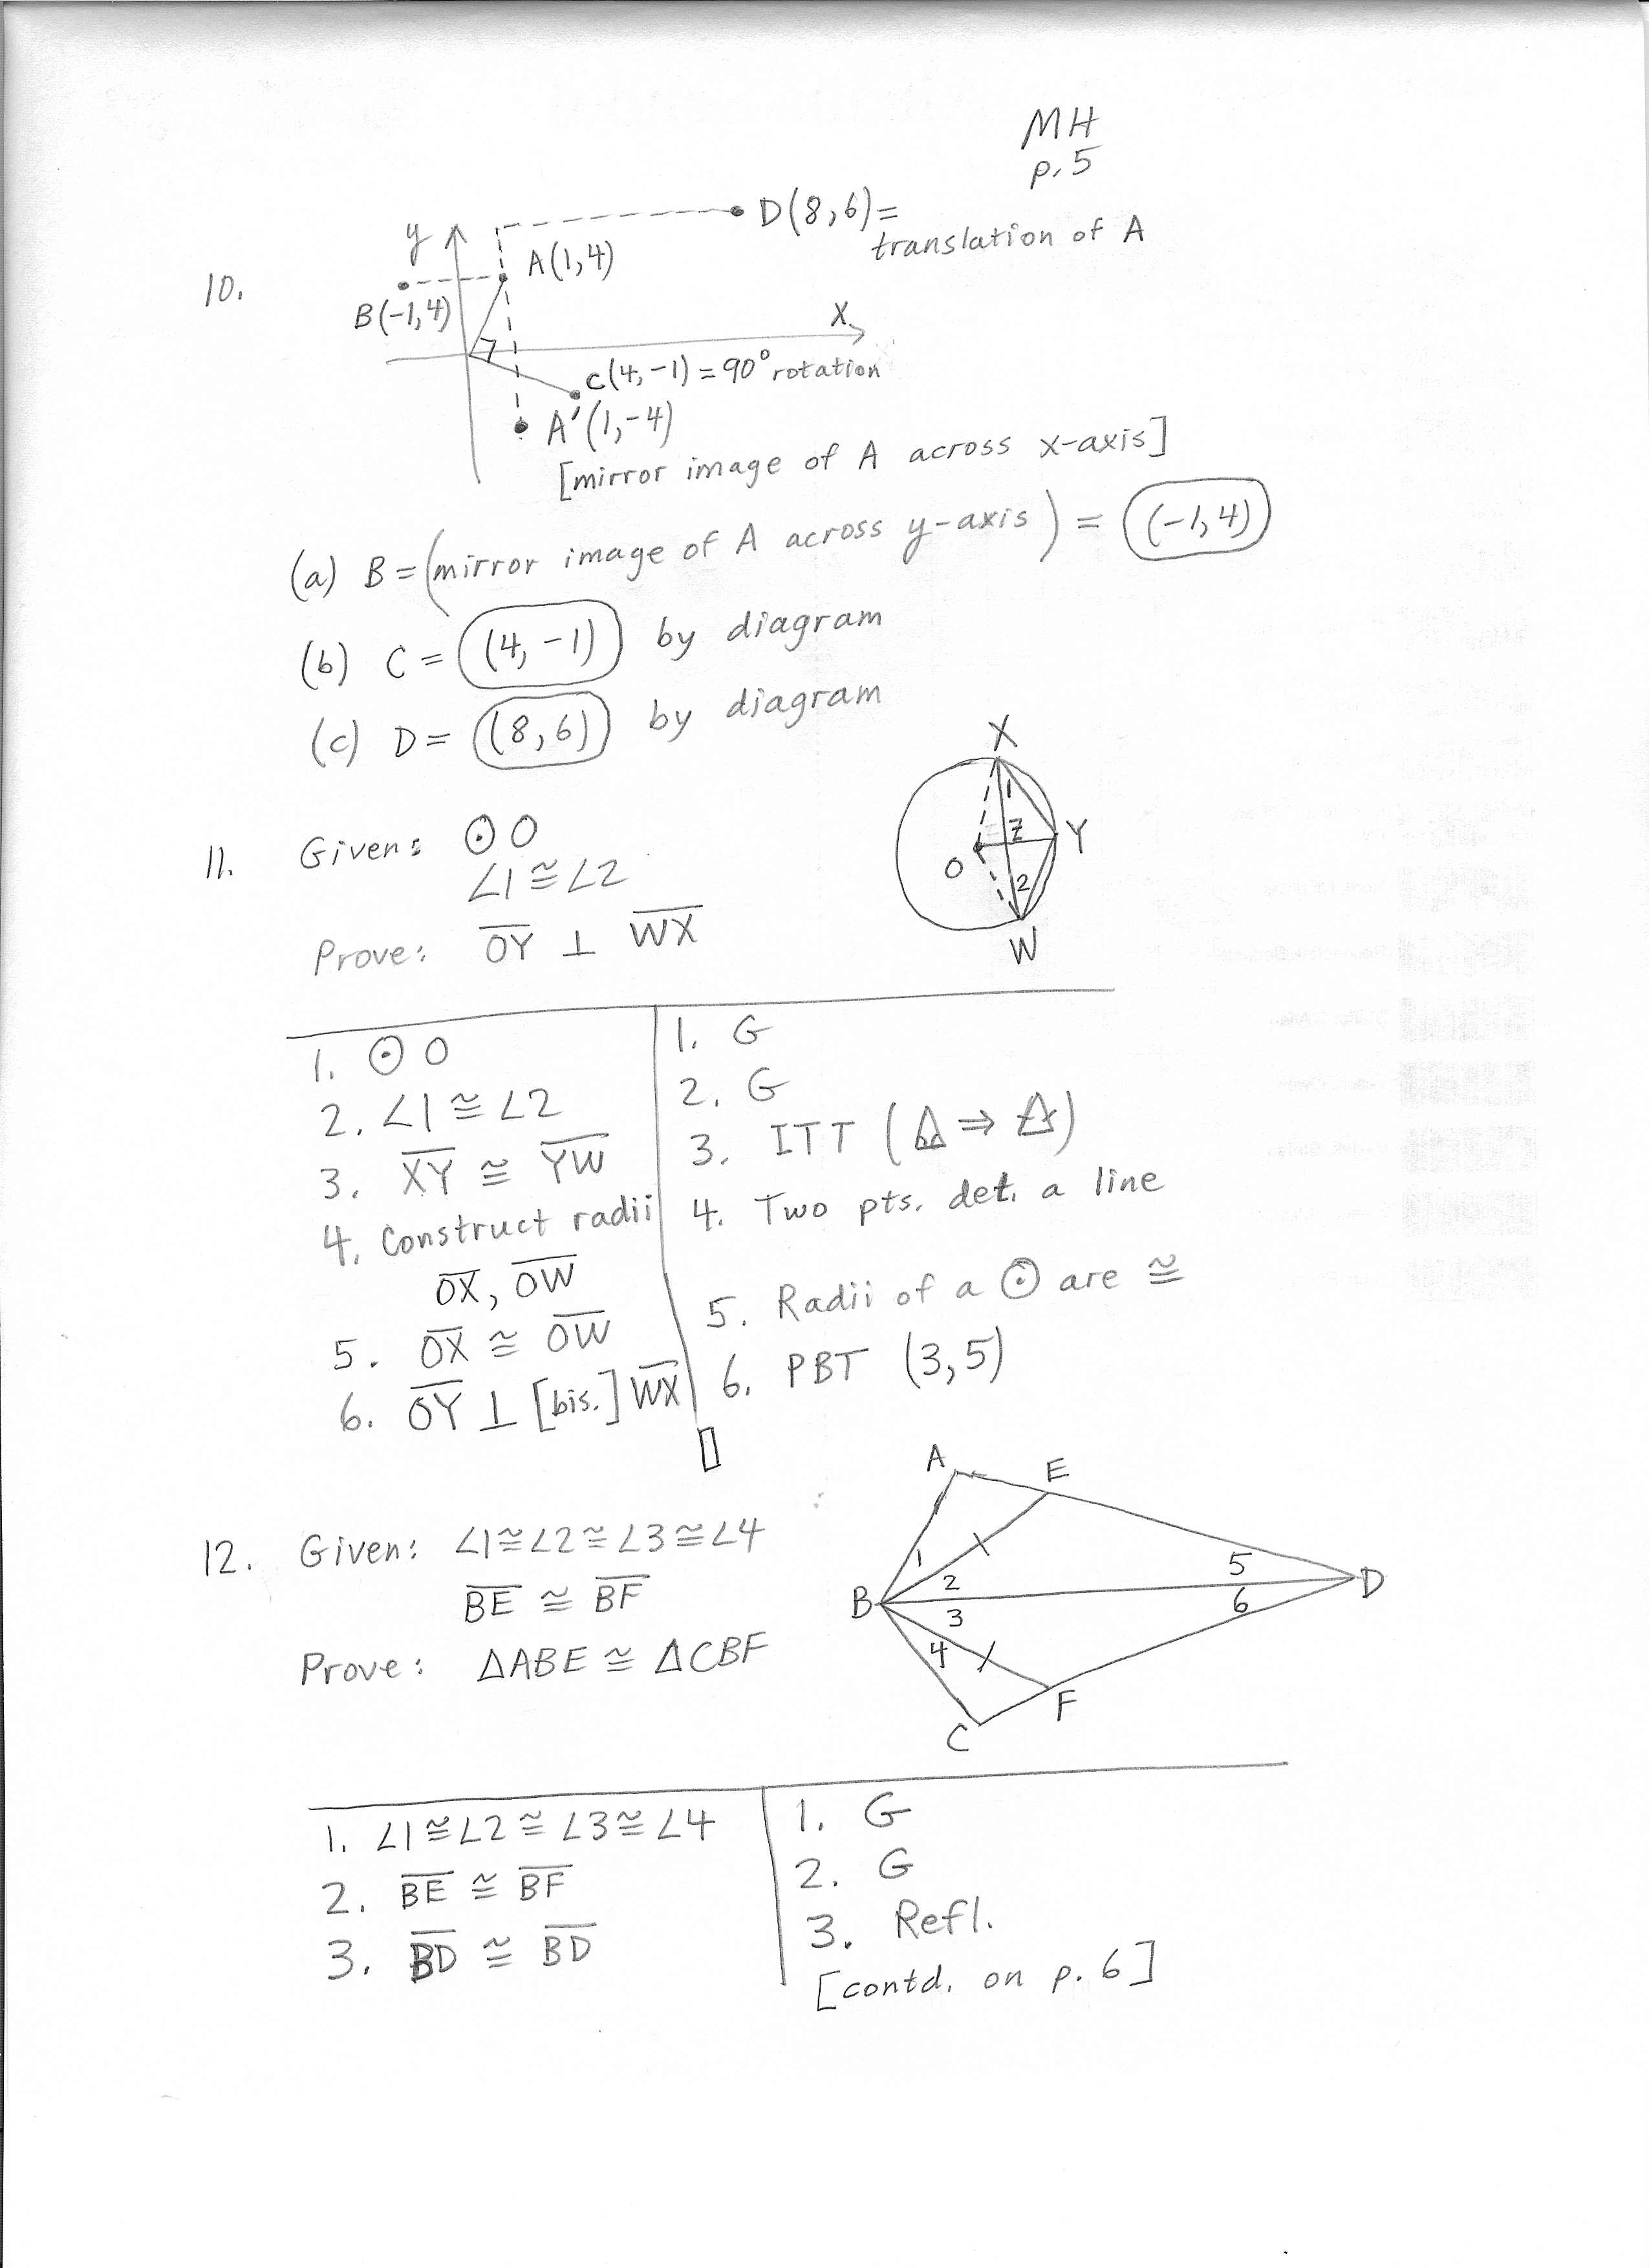 MH
p. 5
10.
y
D(8,6)=
translation of A
A(1,4)
B(-1,4)
X
C(4,-1) = 90° rotation
A'(1,-4)
[mirror image of A across x-axis]
(a) B = (mirror image of A across y-axis) = (-1,4)
(b) C = (4,-1) by diagram
(c) D = (8,6) by diagram
11. Given: ⊙O
∠1≅∠2
Prove: O̅Y̅ ⊥ W̅X̅
X
1
Z
Y
O
2
W
1. ⊙O 1. G
2. ∠1≅∠2 2. G
3. X̅Y̅ ≅ Y̅W̅ 3. ITT (△ ⇒ △)
4. Construct radii 4. Two pts. det. a line
O̅X̅, O̅W̅
5. O̅X̅ ≅ O̅W̅ 5. Radii of a ⊙ are ≅
6. O̅Y̅ ⊥ [bis.] W̅X̅ 6. PBT (3,5)
12. Given: ∠1≅∠2≅∠3≅∠4
B̅E̅ ≅ B̅F̅
Prove: ΔABE ≅ ΔCBF
A
E
1
2
5
B
D
3
6
4
F
C
1. ∠1≅∠2≅∠3≅∠4 1. G
2. B̅E̅ ≅ B̅F̅ 2. G
3. B̅D̅ ≅ B̅D̅ 3. Refl.
[contd. on p. 6]